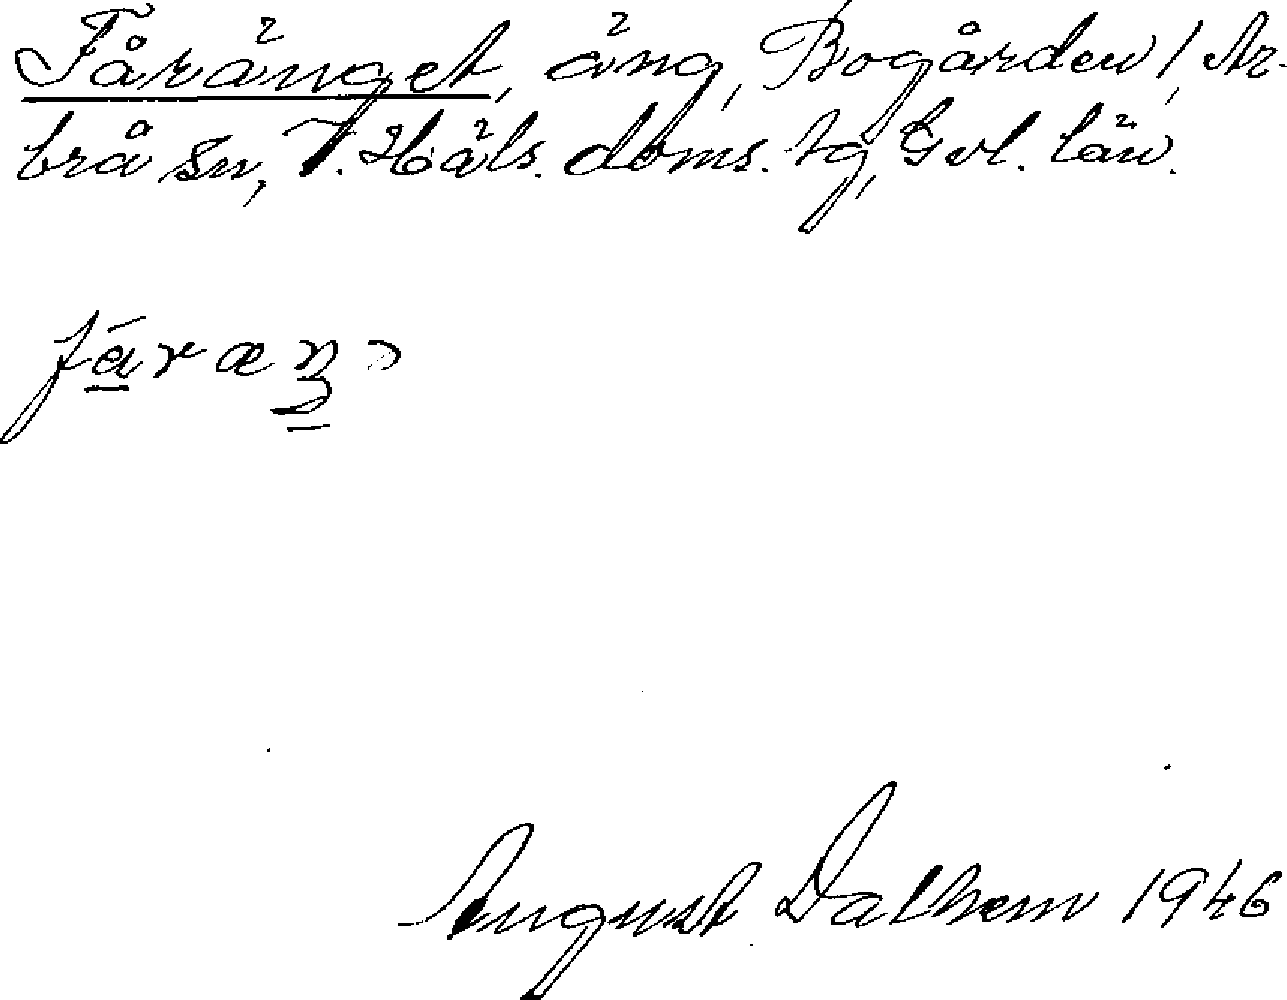 Fåränget, äng, Bogården, Ar-
brå sn, V. Häls. doms. tg, Gvl. län.
fáraŋ
August Dalhem 1946